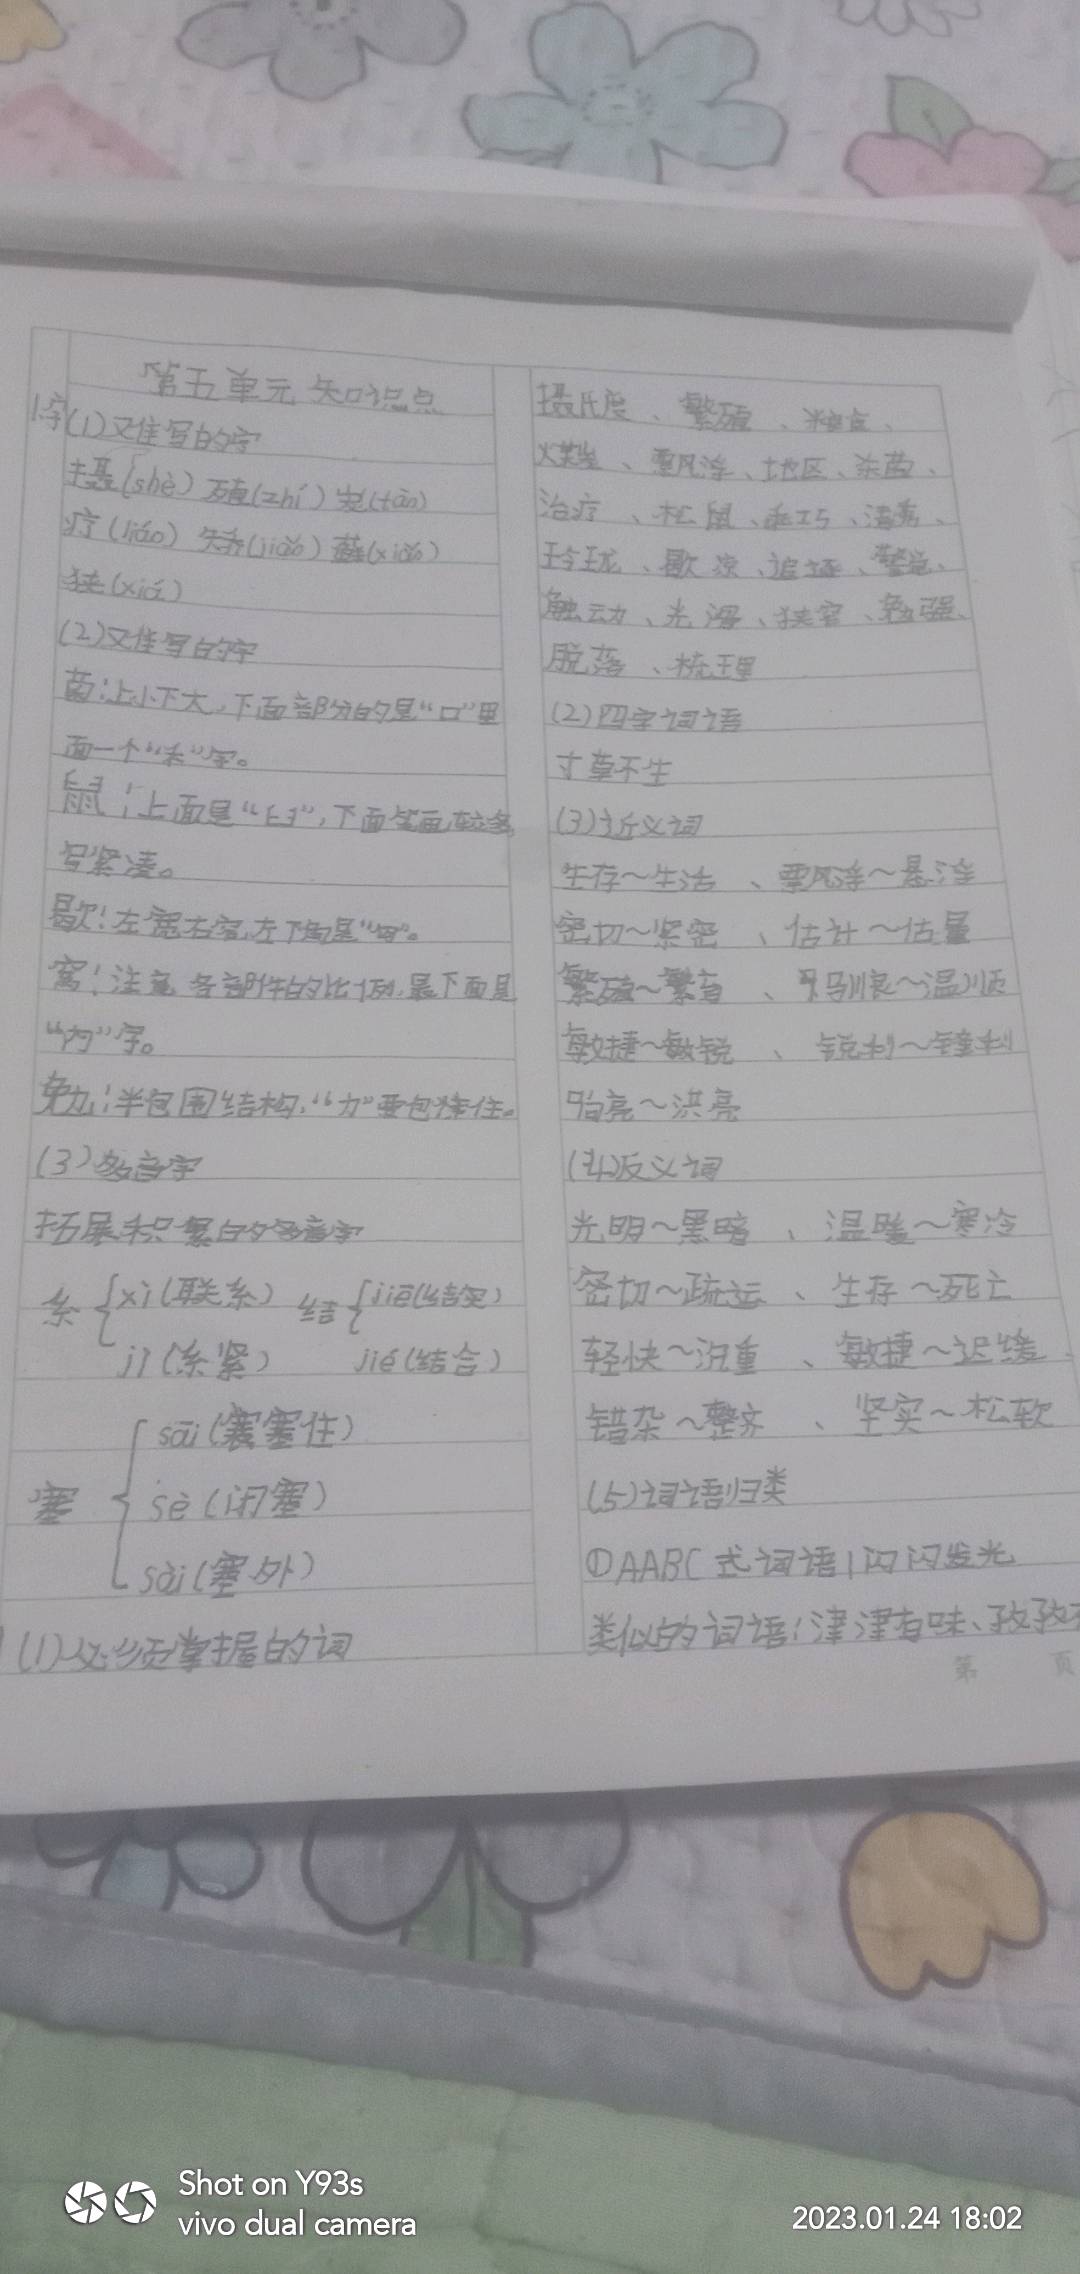 第五单元知识点
1字(1)又佳写的字
摄(shè) 殖(zhí) 炭(tàn)
疗(liáo) 矫(jiǎo) 藓(xiǎn)
狭(xiá)
(2)又佳写的字
菌:上小下大,下面部分的是“口”里
面一个“禾”字。
鼠:上面是“臼”,下面笔画较多
写紧凑。
歇:左宽右窄,左下角是“匃”。
窝:注意各部件的比例,最下面是
“内”字。
勉:半包围结构,“力”要包住。
(3)多音字
拓展积累的多音字
系 xì(联系) 结 jiē(结实)
jì(系紧) jié(结合)
sāi(塞住)
塞 sè(闭塞)
sài(塞外)
(1)必须掌握的词
摄氏度、繁殖、粮食、
飘浮、地区、杀菌、
治疗、松鼠、乖巧、清秀、
玲珑、歇凉、追逐、警觉、
触动、光滑、狭窄、勉强、
脱落、梳理
(2)四字词语
寸草不生
(3)近义词
生存~生活、飘浮~悬浮
密切~紧密、估计~估量
繁殖~繁育、驯良~温顺
敏捷~敏锐、锐利~锋利
响亮~洪亮
(4)反义词
光明~黑暗、温暖~寒冷
密切~疏远、生存~死亡
轻快~沉重、敏捷~迟缓、
错杂~整齐、坚实~松软
(5)词语归类
①AABC式词语:闪闪发光
类似的词语:津津有味、孜孜不
第 页
Shot on Y93s
vivo dual camera
2023.01.24 18:02